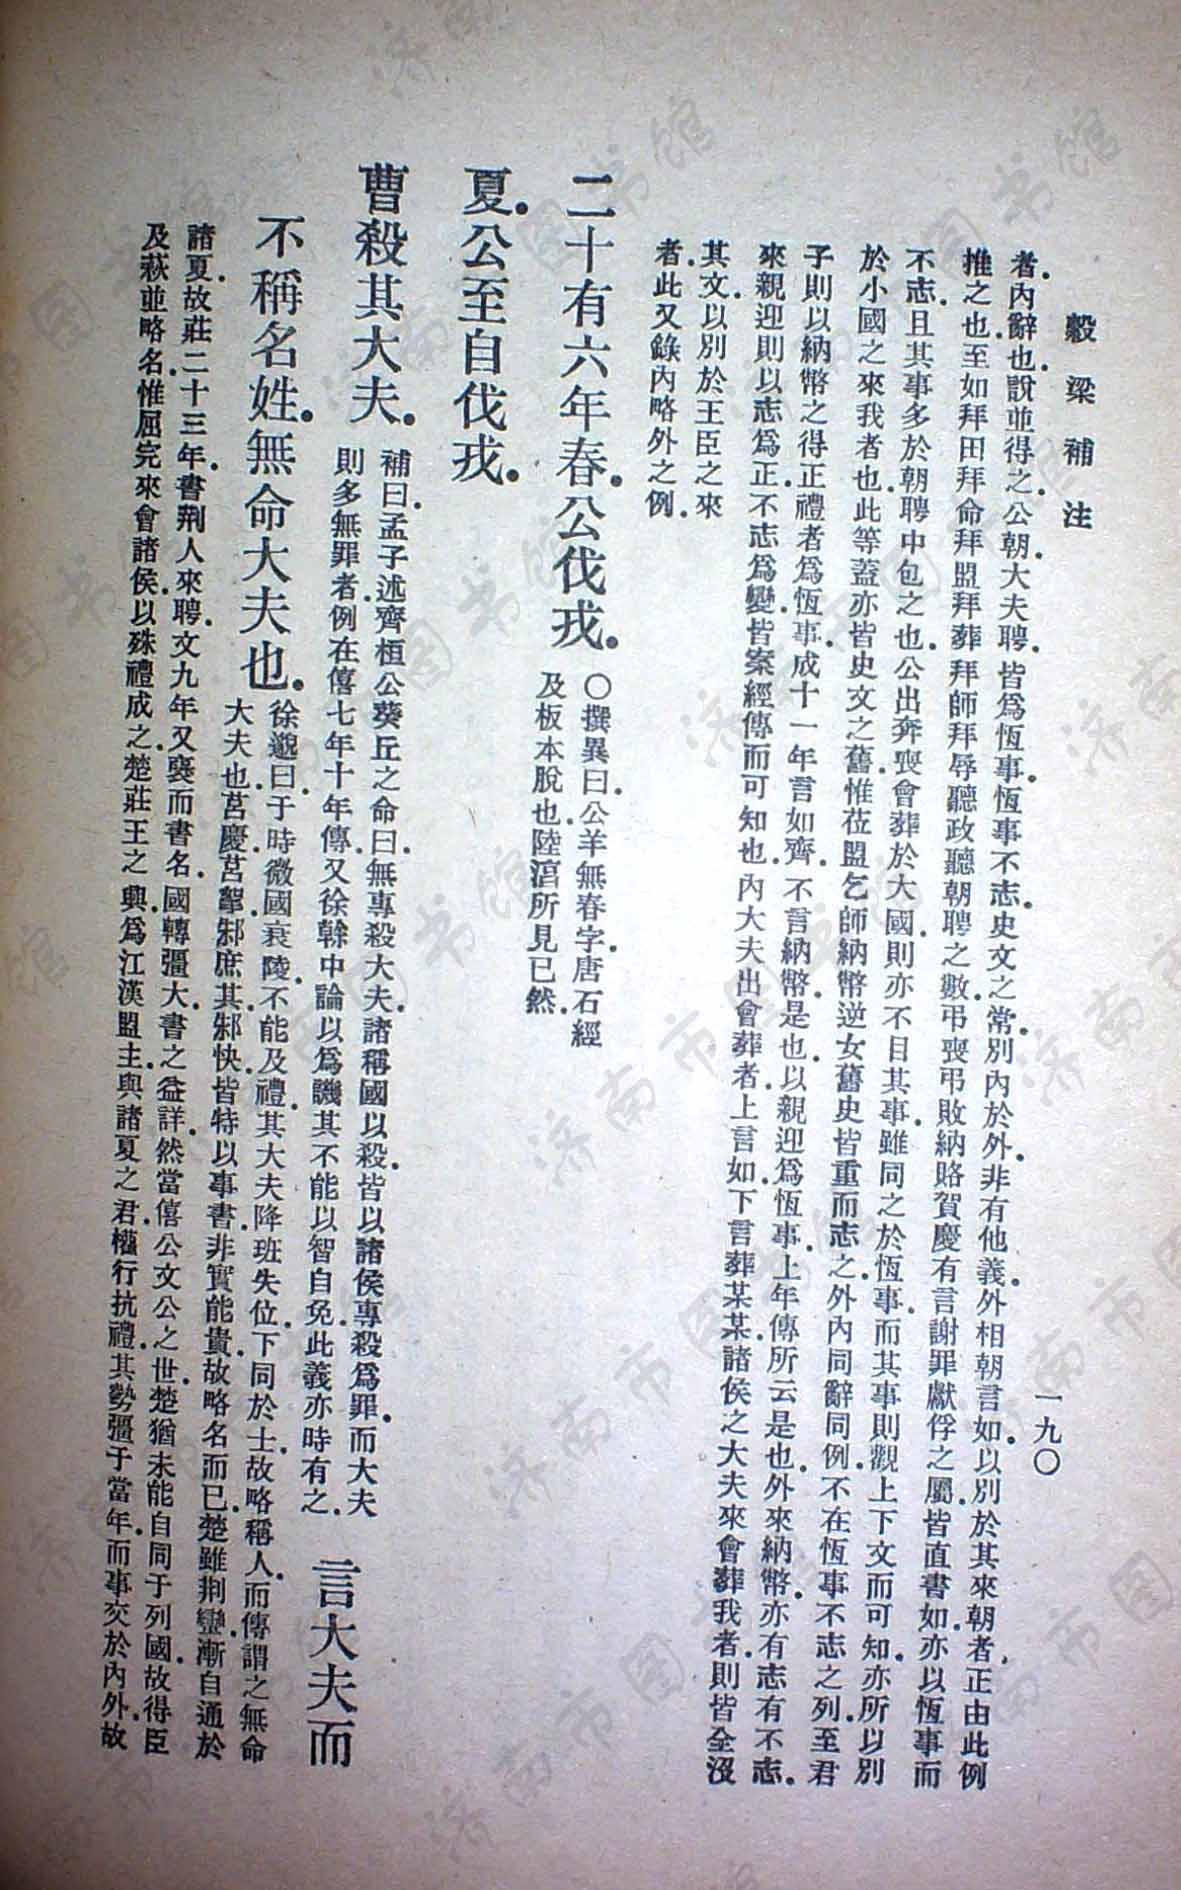 穀梁補注
一九〇
者.內辭也.說並得之.公朝.大夫聘.皆爲恆事.恆事不志.史文之常.別內於外.非有他義.外相朝言如.以別於其來朝者.正由此例
推之也.至如拜田拜命拜盟拜葬拜師拜辱聽政聽朝聘之數.弔喪弔敗納賂賀慶有言謝罪獻俘之屬.皆直書如.亦以恆事而
不志.且其事多於朝聘中包之也.公出奔喪會葬於大國.則亦不目其事.雖同之於恆事.而其事則觀上下文而可知.亦所以別
於小國之來我者也.此等蓋亦皆史文之舊.惟莅盟乞師納幣逆女.舊史皆重而志之.外內同辭同例.不在恆事不志之列.至君
子則以納幣之得正禮者爲恆事.成十一年言如齊.不言納幣.是也.以親迎爲恆事.上年傳所云是也.外來納幣.亦有志有不志.
來親迎則以志爲正.不志爲變.皆案經傳而可知也.內大夫出會葬者.上言如.下言葬某某.諸侯之大夫來會葬我者.則皆全沒
其文.以別於王臣之來
者.此又錄內略外之例.
二十有六年春.公伐戎.
〇撰異曰.公羊無春字.唐石經
及板本脫也.陸湻所見已然.
夏.公至自伐戎.
曹殺其大夫.
補曰.孟子述齊桓公葵丘之命曰.無專殺大夫.諸稱國以殺.皆以諸侯專殺爲罪.而大夫
則多無罪者.例在僖七年十年傳.又徐幹中論以爲譏其不能以智自免.此義亦時有之.
言大夫而
不稱名姓.無命大夫也.
徐邈曰.于時微國衰陵.不能及禮.其大夫降班失位.下同於士.故略稱人.而傳謂之無命
大夫也.莒慶莒挐.邾庶其.邾快.皆特以事書.非實能貴.故略名而已.楚雖荆蠻.漸自通於
諸夏.故莊二十三年.書荆人來聘.文九年.又襃而書名.國轉彊大.書之益詳.然當僖公文公之世.楚猶未能自同于列國.故得臣
及萩並略名.惟屈完來會諸侯.以殊禮成之.楚莊王之興.爲江漢盟主.與諸夏之君.權行抗禮.其勢彊于當年.而事交於內外.故